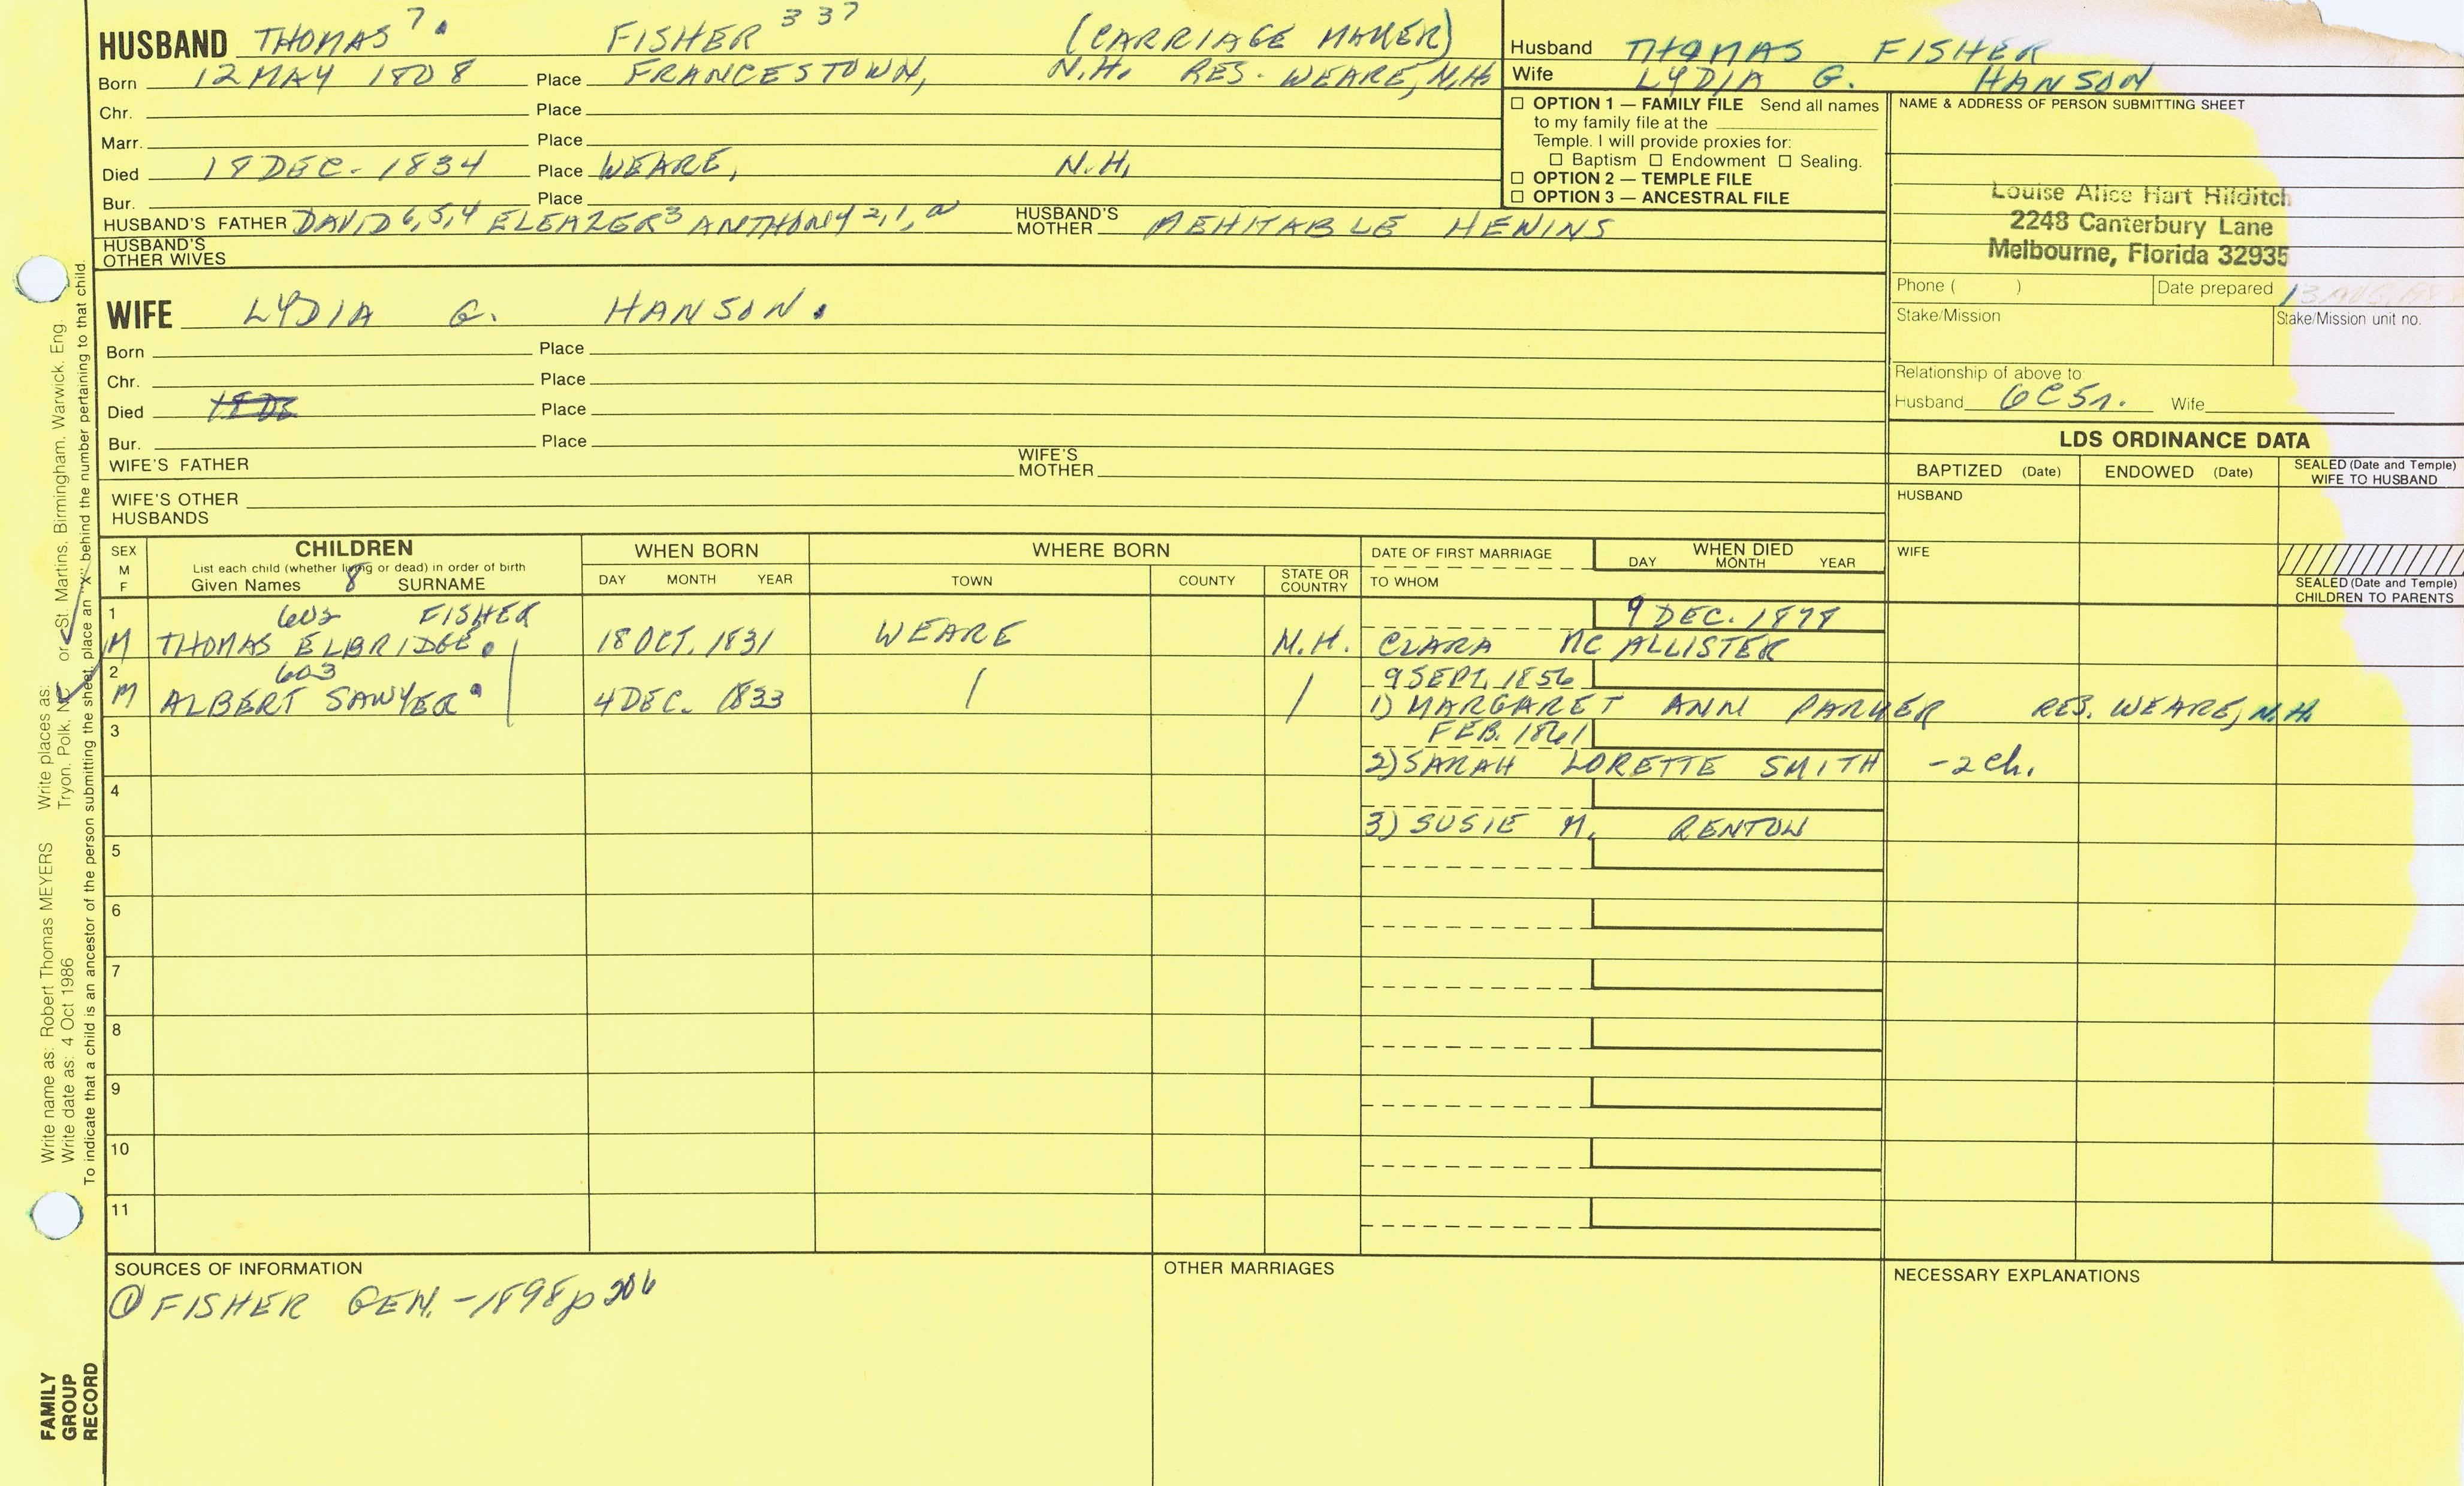 HUSBAND THOMAS 7. FISHER 337 (CARRIAGE MAKER)
Born 12 MAY 1808 Place FRANCESTOWN, N.H. RES. WEARE, N.H.
Chr. Place
Marr. Place
Died 18 DEC. 1834 Place WEARE, N.H.
Bur. Place
HUSBAND'S FATHER DAVID 6,5,4 ELEAZER 3 ANTHONY 2,1,a HUSBAND'S MOTHER MEHITABLE HENINS
HUSBAND'S OTHER WIVES
Husband THOMAS FISHER
Wife LYDIA G. HANSON
☐ OPTION 1 — FAMILY FILE Send all names
to my family file at the
Temple. I will provide proxies for:
☐ Baptism ☐ Endowment ☐ Sealing.
☐ OPTION 2 — TEMPLE FILE
☐ OPTION 3 — ANCESTRAL FILE
NAME & ADDRESS OF PERSON SUBMITTING SHEET
Louise Alice Hart Hilditch
2248 Canterbury Lane
Melbourne, Florida 32935
Phone ( ) Date prepared 13 AUG.
Stake/Mission Stake/Mission unit no.
Relationship of above to:
Husband 6C5r. Wife
WIFE LYDIA G. HANSON.
Born Place
Chr. Place
Died Place
Bur. Place
WIFE'S FATHER WIFE'S MOTHER
WIFE'S OTHER HUSBANDS
LDS ORDINANCE DATA
BAPTIZED (Date) ENDOWED (Date) SEALED (Date and Temple) WIFE TO HUSBAND
HUSBAND
WIFE
SEALED (Date and Temple) CHILDREN TO PARENTS
SEX M F CHILDREN WHEN BORN WHERE BORN DATE OF FIRST MARRIAGE WHEN DIED
List each child (whether living or dead) in order of birth
Given Names 8 SURNAME DAY MONTH YEAR TOWN COUNTY STATE OR COUNTRY TO WHOM DAY MONTH YEAR
1 602 FISHER 9 DEC. 1878
M THOMAS ELBRIDGE. 18 OCT. 1831 WEARE N.H. CLARA MC ALLISTER
2 603 9 SEPT. 1856
M ALBERT SAWYER 4 DEC. 1833 | / 1) MARGARET ANN PARKER RES. WEARE, N.H.
3 FEB. 1861
2) SARAH LORETTE SMITH -2 ch.
4
3) SUSIE M. RENTON
5
6
7
8
9
10
11
SOURCES OF INFORMATION
① FISHER GEN. -1898 p 206
OTHER MARRIAGES
NECESSARY EXPLANATIONS
Write name as: Robert Thomas MEYERS Write places as:
Write date as: 4 Oct 1986 Tryon, Polk, NC or St. Martins, Birmingham, Warwick, Eng.
To indicate that a child is an ancestor of the person submitting the sheet, place an "X" behind the number pertaining to that child.
FAMILY
GROUP
RECORD